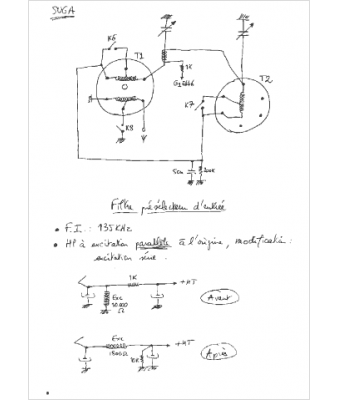 SUGA
K6
T1
1K
G1 E446
T2
K7
K8
50n
Filtre présélecteur d'entrée
• F.I. : 135 KHz
• HP à excitation parallèle à l'origine, modification :
excitation série.
1K
+HT
Exc
Ω
Avant
Exc
1800Ω
+HT
10K
Après